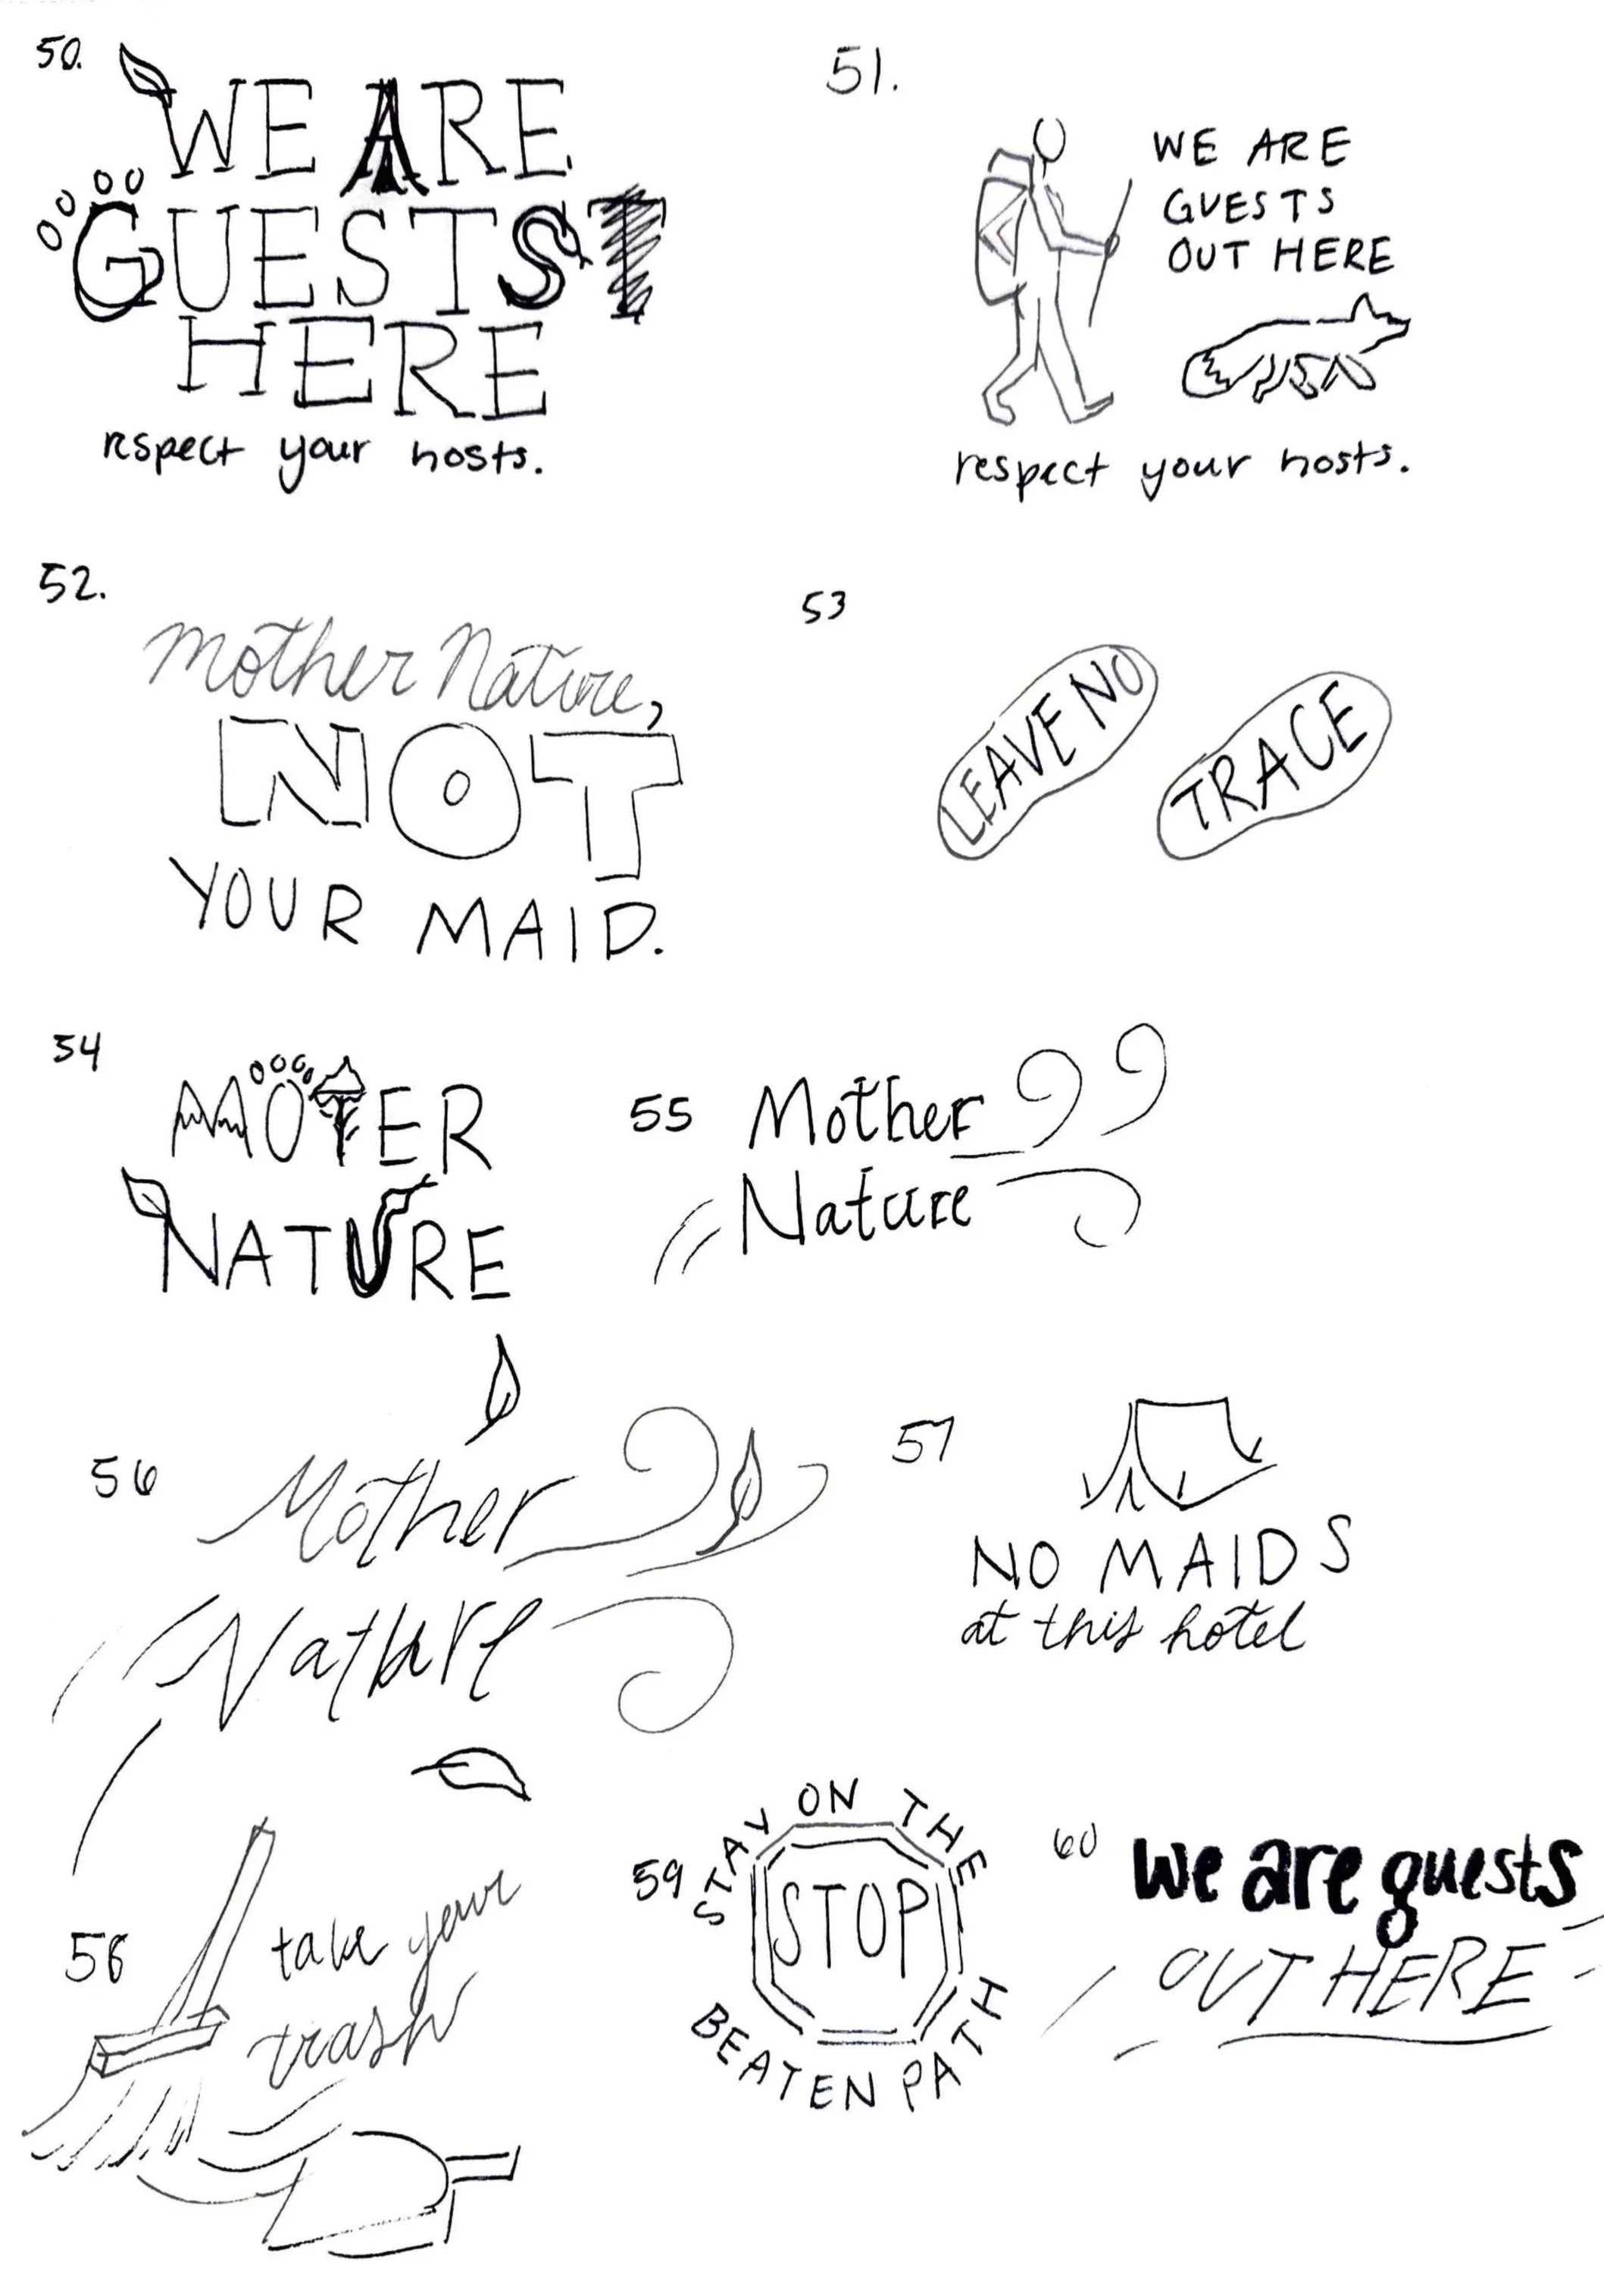 50.
WE ARE
GUESTS
HERE
respect your hosts.
51.
WE ARE
GUESTS
OUT HERE
respect your hosts.
52.
Mother Nature,
NOT
YOUR MAID.
53
LEAVE NO
TRACE
54
MOTER
NATURE
55
Mother
Nature
56
Mother
Nature
57
NO MAIDS
at this hotel
58
take your
trash
59
STAY ON THE
STOP
BEATEN PATH
60
we are guests
OUT HERE